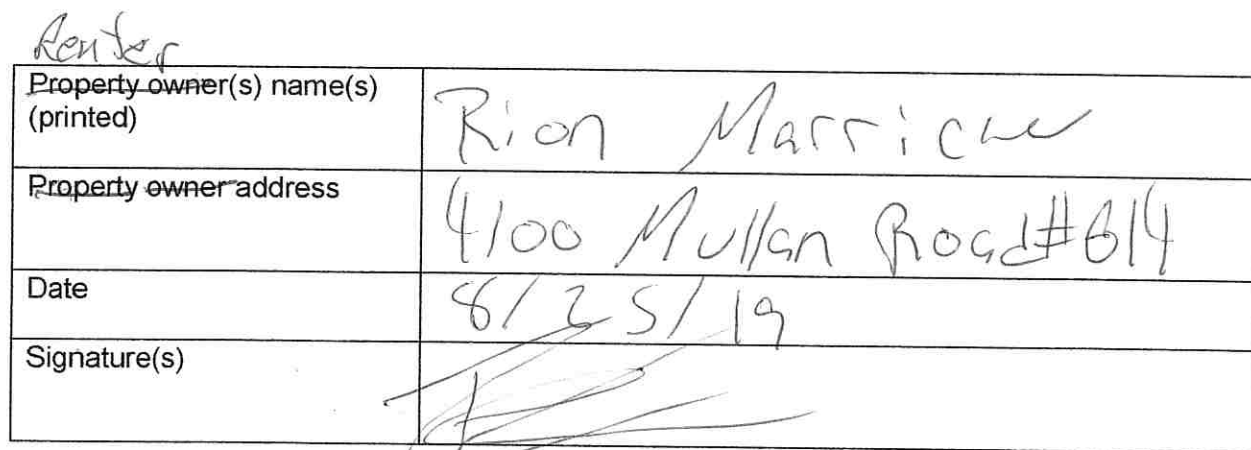 Renter
Property owner(s) name(s)
(printed)
Rion
Property owner address
4100 Mullan Road #614
Date
8/25/19
Signature(s)